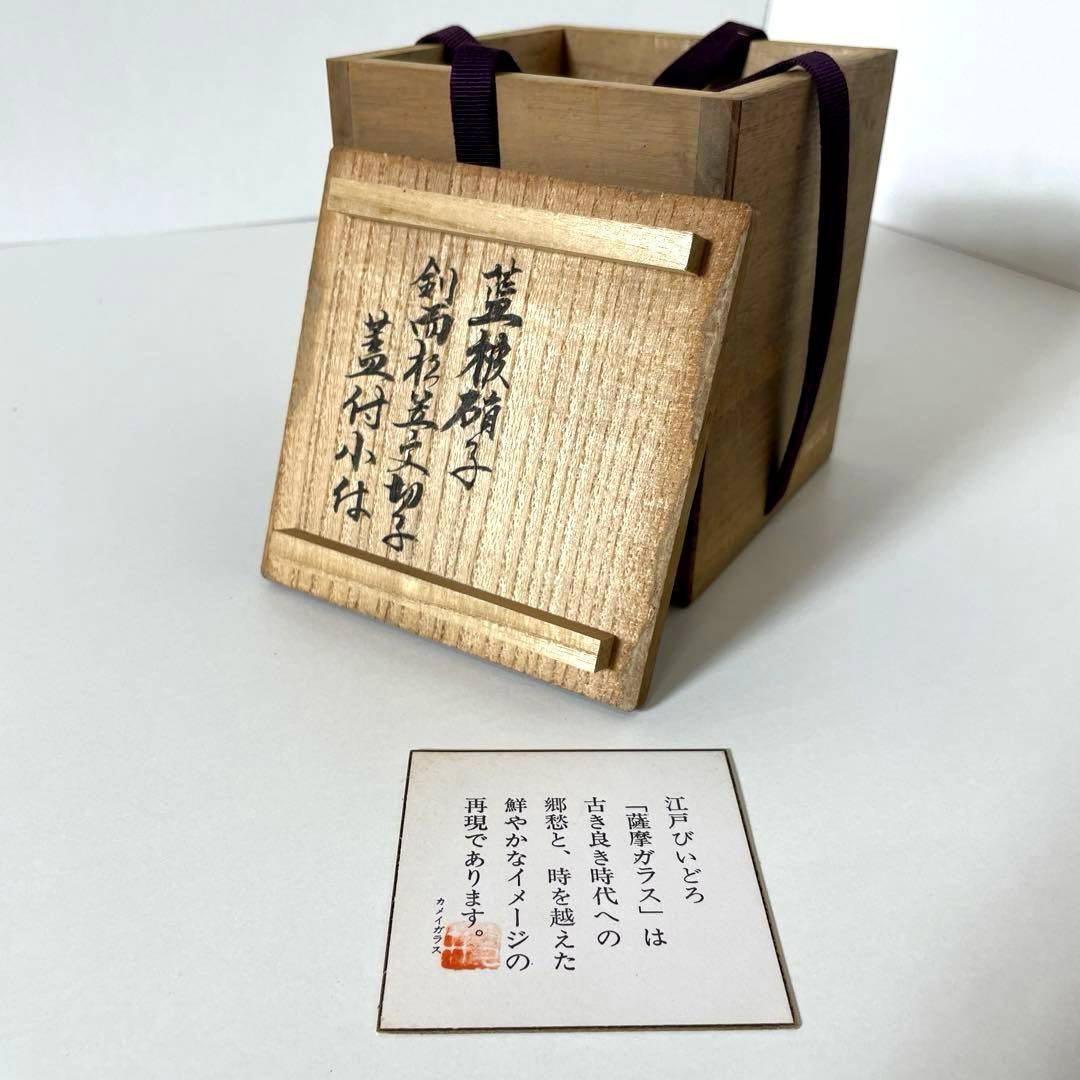 藍被硝子
剣両杉並文切子
蓋付小付
江戸びいどろ
「薩摩ガラス」は
古き良き時代への
郷愁と、時を越えた
鮮やかなイメージの
再現であります。
カメイガラス